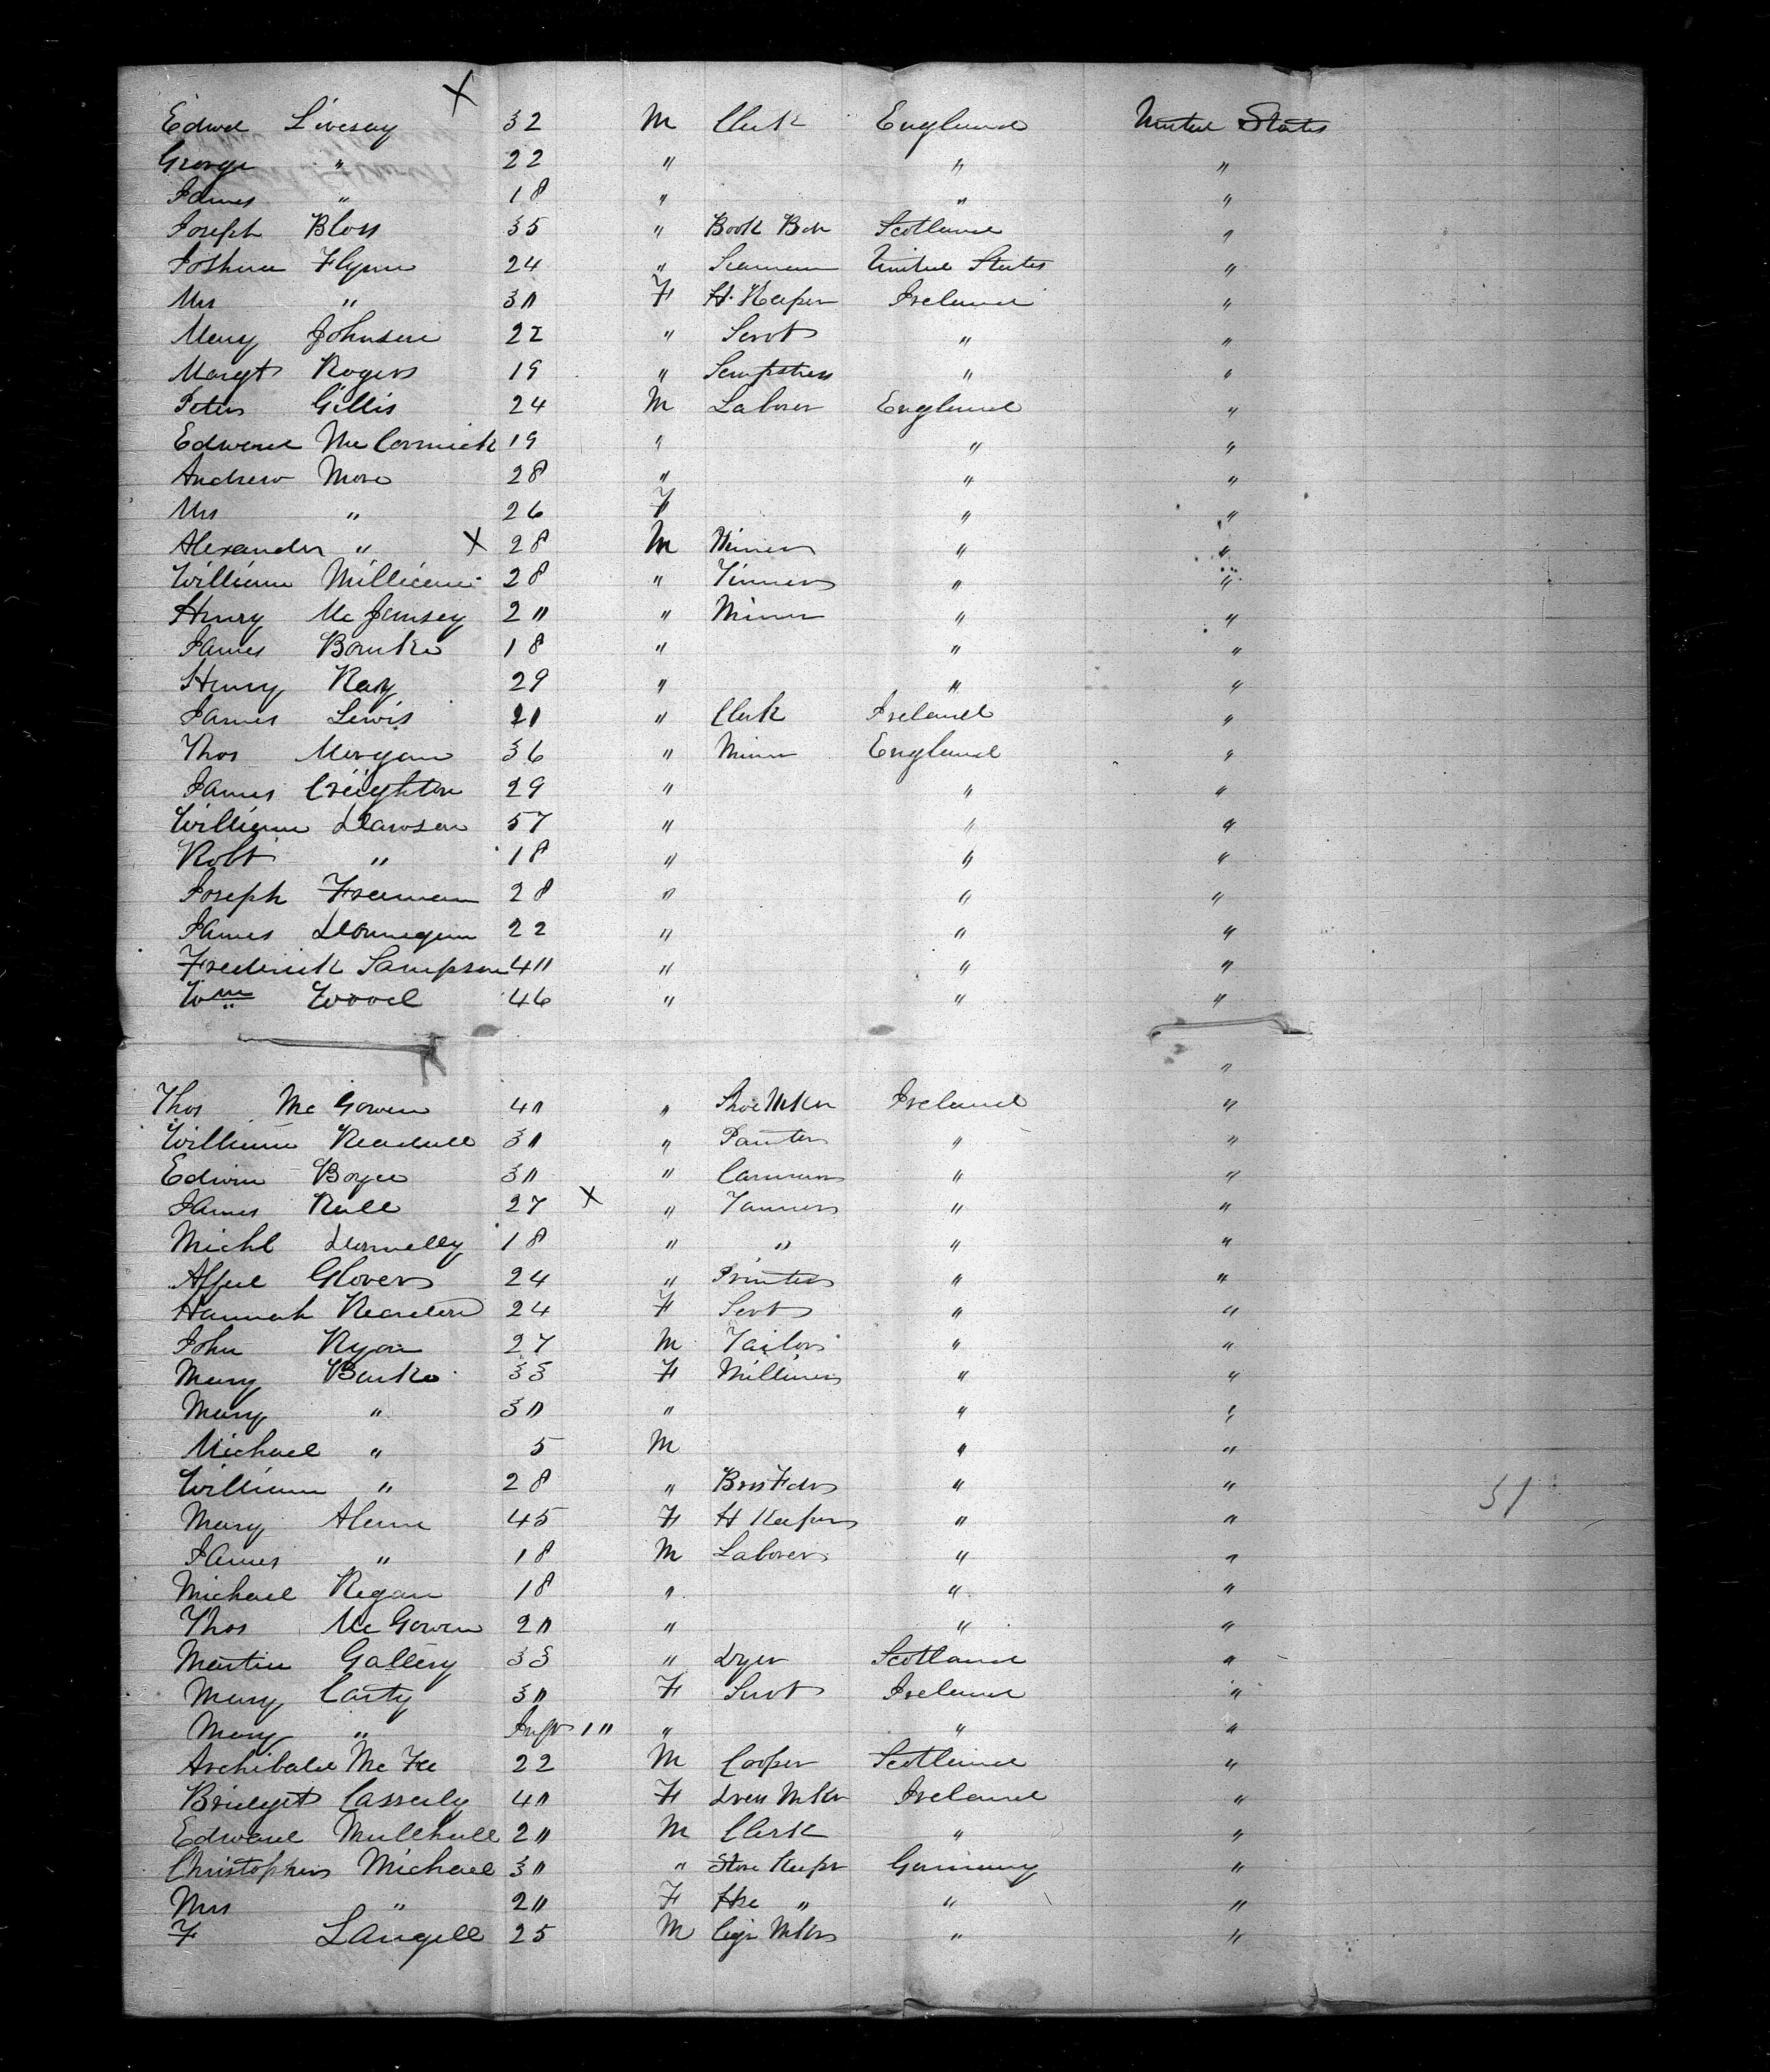 X
Edwd Livesay 32 M Clerk England United States
George " 22 " " "
James " 18 " " "
Joseph Bloss 35 " Book Bdr Scotland "
Joshua Flynn 24 " Seaman United States "
Mrs " 30 F H. Keeper Ireland "
Mary Johnson 22 " Servt " "
Margt Rogers 19 " Sempstress " "
Peter Gillis 24 M Laborer England "
Edward McCormick 19 " " "
Andrew More 28 " " "
Mrs " 26 F " "
Alexander " X 28 M Miner " "
William Millican 28 " Tinner " "
Henry McJamsey 20 " Miner " "
James Bourke 18 " " "
Henry Ray 29 " " "
James Lewis 21 " Clerk Ireland "
Thos Morgan 36 " Miner England "
James Creighton 29 " " "
William Dawson 57 " " "
Robt " 18 " " "
Joseph Freeman 28 " " "
James Donnegan 22 " " "
Frederick Sampson 40 " " "
Wm Wood 46 " " "
"
Thos McGowen 40 " Shoe Mkr Ireland "
William 30 " Painter " "
Edwin Boyce 30 " " "
James Rull 27 X " Tanner " "
Michl Donnelly 18 " " " "
Glover 24 " Printer " "
Hannah Reardon 24 F Servt " "
John Ryan 27 M Tailor " "
Mary Burke 33 F Milliner " "
Mary " 30 " " "
Michael " 5 M " "
William " 28 " Brss Fdr " "
Mary Ahern 45 F H Keeper " "
James " 18 M Laborer " "
Michael Regan 18 " " "
Thos McGowen 20 " " "
Martin Gallery 33 " Dyer Scotland "
Mary Carty 30 F Servt Ireland "
Mary " Inft 10 " " "
Archibald McFee 22 M Cooper Scotland "
Bridget Casserly 40 F Dress Mkr Ireland "
Edward Mullhall 20 M Clerk " "
Christopher Michael 30 " Store Keepr Germany "
Mrs " 20 F Hse " " "
F Langell 25 M Cigr Mkr " "
51